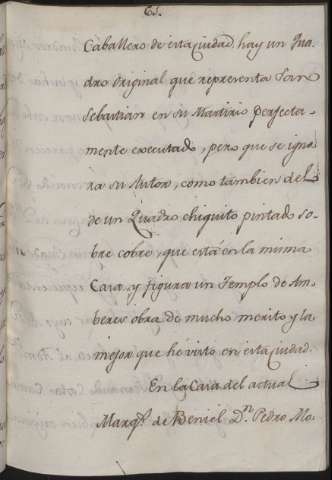 Caballero de esta Ciudad, hay un Qua-
dro Original que representa San
Sebastian en su Martirio perfecta-
mente executado, pero que se igno-
ra su Autor, como tambien del
de un Quadro chiquito pintado so-
bre cobre, que está en la misma
Casa, y figura un Templo de Am-
beres obra de mucho merito y la
mejor que he visto en esta Ciudad.
En la Casa del actual
Marqs. de Beniel Dn. Pedro Mo-